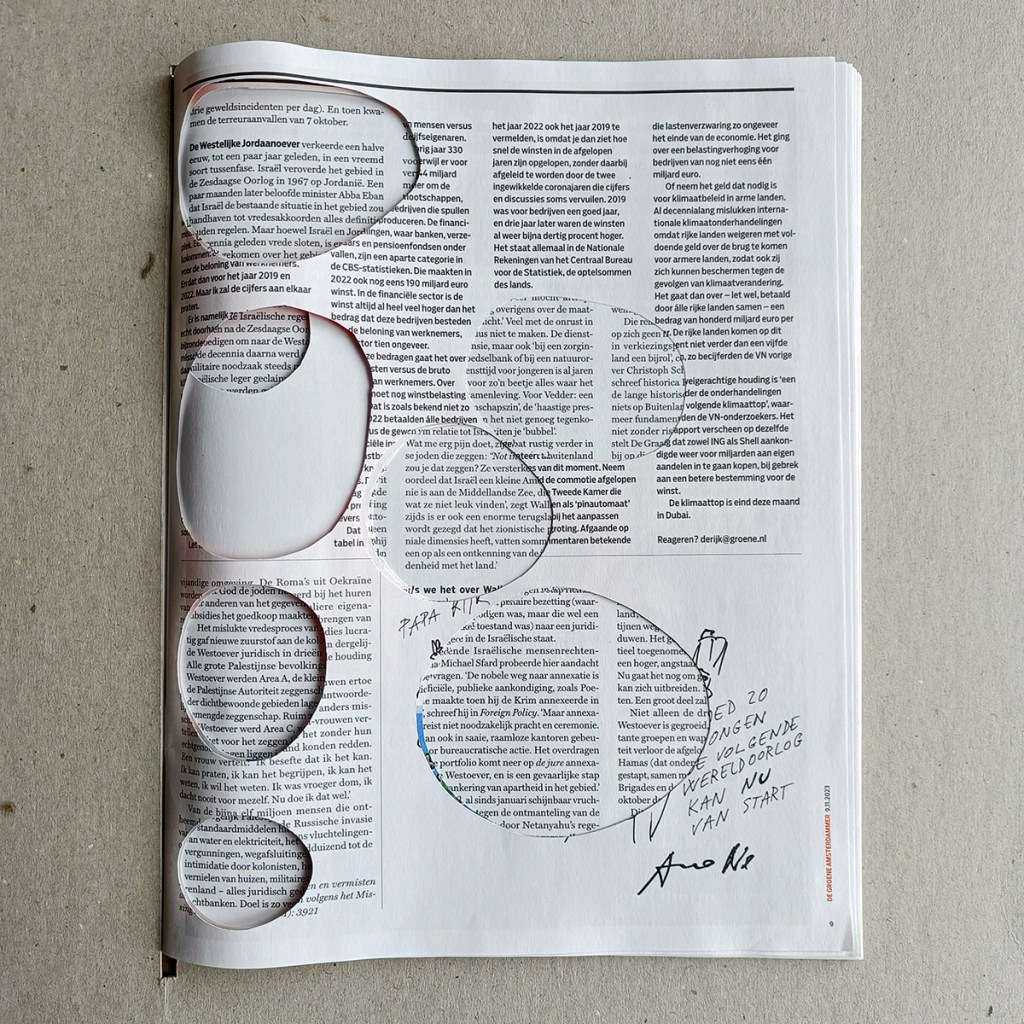 drie geweldsincidenten per dag). En toen kwa-
men de terreuraanvallen van 7 oktober.
De Westelijke Jordaanoever verkeerde een halve
eeuw, tot een paar jaar geleden, in een vreemd
soort tussenfase. Israël veroverde het gebied in
de Zesdaagse Oorlog in 1967 op Jordanië. Een
paar maanden later beloofde minister Abba Eban
dat Israël de bestaande situatie in het gebied zou
handhaven tot vredesakkoorden alles definiti
uden regelen. Maar hoewel Israël en Jord
ennia geleden vrede sloten, is
ekomen over het gebi
voor de beloning van werknemers.
En dat dan voor het jaar 2019 en
2022. Maar ik zal de cijfers aan elkaar
praten.
Er is namelijk
echt doorhen
bijzonde
Israëlische rege
na de Zesdaagse Oor
oedigen om naar de West
de decennia daarna werd
ilitaire noodzaak steeds
ëlische leger geclaim
werden
mensen versus
drijfseigenaren.
rig jaar 330
erwijl er voor
44 miljard
meer om de
nootschappen,
bedrijven die spullen
produceren. De financi-
ingen, waar banken, verze-
eraars en pensioenfondsen onder
vallen, zijn een aparte categorie in
de CBS-statistieken. Die maakten in
2022 ook nog eens 190 miljard euro
winst. In de financiële sector is de
winst altijd al heel veel hoger dan het
bedrag dat deze bedrijven besteden
de beloning van werknemers,
tor tien ongeveer.
ze bedragen gaat het over
sten versus de bruto
an werknemers. Over
oet nog winstbelasting
at is zoals bekend niet zo
022 betaalden álle bedrijven
us de gewon
Dat
tabel in
het jaar 2022 ook het jaar 2019 te
vermelden, is omdat je dan ziet hoe
snel de winsten in de afgelopen
jaren zijn opgelopen, zonder daarbij
afgeleid te worden door de twee
ingewikkelde coronajaren die cijfers
en discussies soms vervuilen. 2019
was voor bedrijven een goed jaar,
en drie jaar later waren de winsten
al weer bijna dertig procent hoger.
Het staat allemaal in de Nationale
Rekeningen van het Centraal Bureau
voor de Statistiek, de optelsommen
des lands.
overigens over de maat-
icht.' Veel met de onrust in
us niet te maken. De dienst-
nsie, maar ook 'bij een zorgin-
edselbank of bij een natuuror-
ensttijd voor jongeren is al jaren
voor zo'n beetje alles waar het
amenleving. Voor Vedder: een
schapszin', de 'haastige pres-
en het niet genoeg tegenkо-
iten je 'bubbel'.
Die re
op zich geen
in verkiezings
land een bijrol', c
ver Christoph Sch
schreef historica
de lange historis
niets op Buitenla
meer fundament
niet zonder ris
stelt De Graa
bij
die lastenverzwaring zo ongeveer
het einde van de economie. Het ging
over een belastingverhoging voor
bedrijven van nog niet eens één
miljard euro.
Of neem het geld dat nodig is
voor klimaatbeleid in arme landen.
Al decennialang mislukken interna-
tionale klimaatonderhandelingen
omdat rijke landen weigeren met vol-
doende geld over de brug te komen
voor armere landen, zodat ook zij
zich kunnen beschermen tegen de
gevolgen van klimaatverandering.
Het gaat dan over – let wel, betaald
door álle rijke landen samen – een
bedrag van honderd miljard euro per
r. De rijke landen komen op dit
ent niet verder dan een vijfde
n, zo becijferden de VN vorige
weigerachtige houding is 'een
der de onderhandelingen
volgende klimaattop', waar-
den de VN-onderzoekers. Het
apport verscheen op dezelfde
dag dat zowel ING als Shell aankon-
digde weer voor miljarden aan eigen
aandelen in te gaan kopen, bij gebrek
aan een betere bestemming voor de
winst.
De klimaattop is eind deze maand
in Dubai.
Reageren? derijk@groene.nl
m relatie tot Isra
Wat me erg pijn doet, zi
se joden die zeggen: "Not in
zou je dat zeggen? Ze versterke
oordeel dat Israël een kleine Am
nie is aan de Middellandse Zee, di
wat ze niet leuk vinden', zegt W
zijds is er ook een enorme terugsla
wordt gezegd dat het zionistische
niale dimensies heeft, vatten somm
een op als een ontkenning van de
denheid met het land.'
gebat rustig verder in
buitenland
van dit moment. Neem
d de commotie afgelopen
Tweede Kamer die
len als 'pinautomaat'
bij het aanpassen
groting. Afgaande op
mentaren betekende
vijandige omgeving. De Roma's uit Oekraïne
God de joden
anderen van het gegeve
subsidies het goedkoop maakte
Het mislukte vredesproces van
tig gaf nieuwe zuurstof aan de kolo
de Westoever juridisch in drieën
Alle grote Palestijnse bevolking
Westoever werden Area A, de klein
de Palestijnse Autoriteit zeggensch
der dichtbewoonde gebieden la
mengde zeggenschap. Ruim
Westoever werd Area C,
et voor het zeggen
gen liggen
Een vrouw vertelt: 'Ik besefte dat ik het kan.
Ik kan praten, ik kan het begrijpen, ik kan het
weten, ik wil het weten. Ik was vroeger dom, ik
dacht nooit voor mezelf. Nu doe ik dat wel.'
Van de bijna elf miljoen mensen die ont-
Russische invasie
vluchtelingen-
dduizend tot de
standaardmiddelen
an water en elektriciteit, he
vergunningen, wegafsluitinge
intimidatie door kolonisten, h
vernielen van huizen, militaire
renland – alles juridisch ged
echtbanken. Doel is zo ve
en en vermisten
volgens het Mis-
): 3921
we het over Wal
PAPA KIJK
penaire bezetting (waar-
odigen was, maar die wel een
ke toestand was) naar een juridi-
ece in de Israëlische staat.
ende Israëlische mensenrechten-
Michael Sfard probeerde hier aandacht
evragen. 'De nobele weg naar annexatie is
eficiële, publieke aankondiging, zoals Poe-
e maakte toen hij de Krim annexeerde in
schreef hij in Foreign Policy. 'Maar annexa-
reist niet noodzakelijk pracht en ceremonie.
an ook in saaie, raamloze kantoren gebeu-
or bureaucratische actie. Het overdragen
portfolio komt neer op de jure annexa-
Westoever, en is een gevaarlijke stap
ankering van apartheid in het gebied.'
al sinds januari schijnbaar vruch-
egen de ontmanteling van de
door Netanyahu's rege-
tijnen weg
duwen. Het g
tieel toegenome
een hoger, angstaa
Nu gaat het nog om g
kan zich uitbreiden.
ten. Een groot deel za
Niet alleen de dr
Westoever is gegroeid
tante groepen en wap
teit verloor de afgelo
Hamas (dat onder
gestapt, samen m
Brigades en d
oktober d
ED 20
ONGEN
E VOLGENDE
WERELDOORLOG
KAN NU
VAN START
DE GROENE AMSTERDAMMER 9.11.2023
9